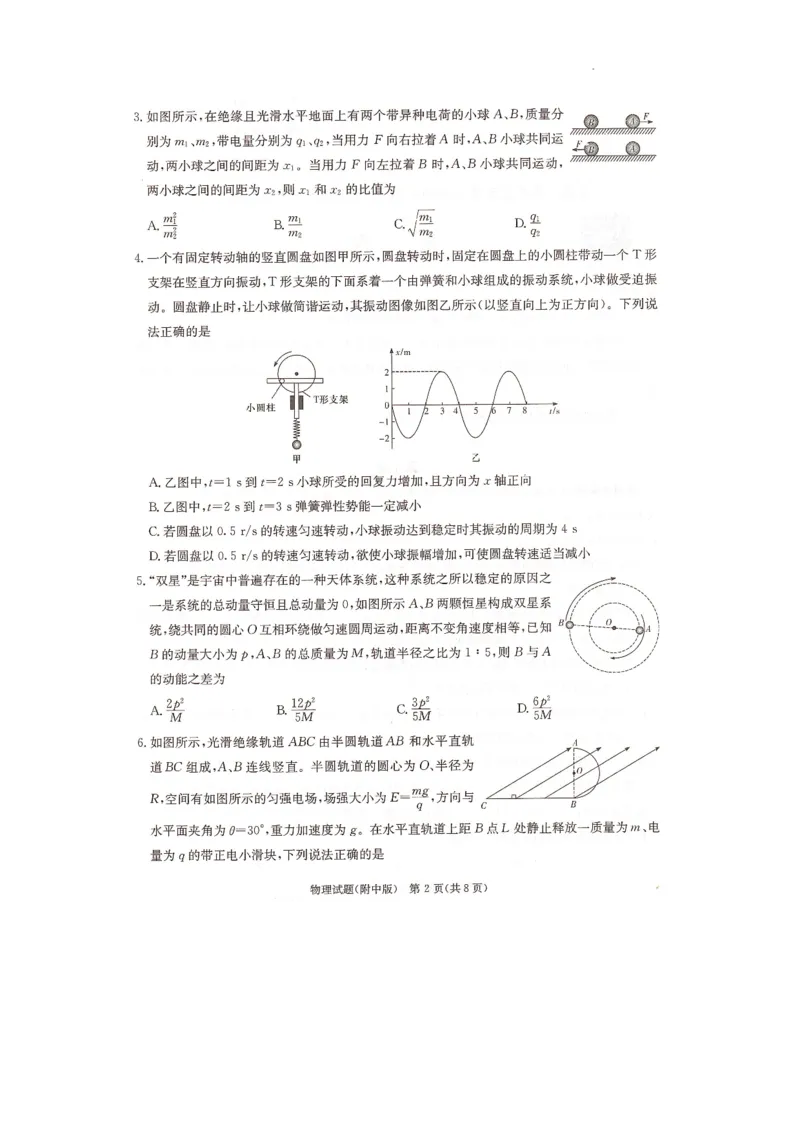 3. 如图所示,在绝缘且光滑水平地面上有两个带异种电荷的小球 A、B,质量分
别为 m₁、m₂,带电量分别为 q₁、q₂,当用力 F 向右拉着 A 时,A、B 小球共同运
动,两小球之间的间距为 x₁。当用力 F 向左拉着 B 时,A、B 小球共同运动,
两小球之间的间距为 x₂,则 x₁ 和 x₂ 的比值为
B A F
F B A
A. m₁²/m₂² B. m₁/m₂ C. √(m₁/m₂) D. q₁/q₂
4. 一个有固定转动轴的竖直圆盘如图甲所示,圆盘转动时,固定在圆盘上的小圆柱带动一个 T 形
支架在竖直方向振动,T 形支架的下面系着一个由弹簧和小球组成的振动系统,小球做受迫振
动。圆盘静止时,让小球做简谐运动,其振动图像如图乙所示(以竖直向上为正方向)。下列说
法正确的是
小圆柱 T形支架
甲
x/m
2
1
0 1 2 3 4 5 6 7 8 t/s
-1
-2
乙
A. 乙图中,t=1 s 到 t=2 s 小球所受的回复力增加,且方向为 x 轴正向
B. 乙图中,t=2 s 到 t=3 s 弹簧弹性势能一定减小
C. 若圆盘以 0.5 r/s 的转速匀速转动,小球振动达到稳定时其振动的周期为 4 s
D. 若圆盘以 0.5 r/s 的转速匀速转动,欲使小球振幅增加,可使圆盘转速适当减小
5. “双星”是宇宙中普遍存在的一种天体系统,这种系统之所以稳定的原因之
一是系统的总动量守恒且总动量为 0,如图所示 A、B 两颗恒星构成双星系
统,绕共同的圆心 O 互相环绕做匀速圆周运动,距离不变角速度相等,已知
B 的动量大小为 p,A、B 的总质量为 M,轨道半径之比为 1∶5,则 B 与 A
的动能之差为
B O A
A. 2p²/M B. 12p²/5M C. 3p²/5M D. 6p²/5M
6. 如图所示,光滑绝缘轨道 ABC 由半圆轨道 AB 和水平直轨
道 BC 组成,A、B 连线竖直。半圆轨道的圆心为 O、半径为
R,空间有如图所示的匀强电场,场强大小为 E=mg/q,方向与
水平面夹角为 θ=30°,重力加速度为 g。在水平直轨道上距 B 点 L 处静止释放一质量为 m、电
量为 q 的带正电小滑块,下列说法正确的是
A
O
C B
物理试题(附中版) 第 2 页(共 8 页)